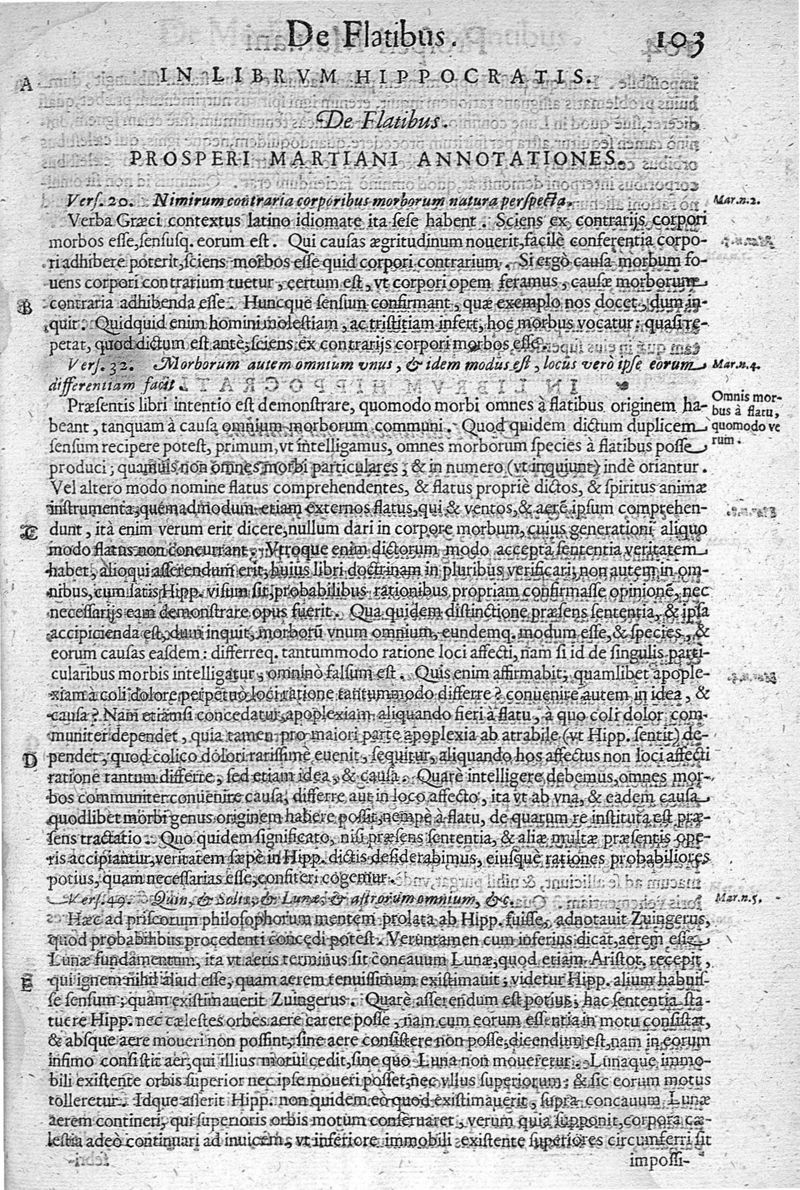 De Flatibus. 103
A IN LIBRVM HIPPOCRATIS.
De Flatibus.
PROSPERI MARTIANI ANNOTATIONES.
Vers. 20. Nimirum contraria corporibus morborum natura perspecta. Mar.n.2.
Verba Græci contextus latino idiomate ita sese habent. Sciens ex contrarijs corpori
morbos esse, sensusq. eorum est. Qui causas ægritudinum nouerit, facilè conferentia corpo-
ri adhibere poterit, sciens morbos esse quid corpori contrarium. Si ergò causa morbum fo-
uens corpori contrarium tuetur, certum est, vt corpori opem feramus, causæ morborum
B contraria adhibenda esse. Huncque sensum confirmant, quæ exemplo nos docet, dum in-
quit. Quidquid enim homini molestiam, ac tristitiam infert, hoc morbus vocatur: quasi re-
petat, quod dictum est antè, sciens ex contrarijs corpori morbos esse.
Vers. 32. Morborum autem omnium vnus, & idem modus est, locus verò ipse eorum Mar.n.4.
differentiam facit.
Præsentis libri intentio est demonstrare, quomodo morbi omnes à flatibus originem ha- Omnis mor-
beant, tanquam à causa omnium morborum communi. Quod quidem dictum duplicem bus à flatu,
sensum recipere potest, primum, vt intelligamus, omnes morborum species à flatibus posse quomodo ve
produci; quamuis non omnes morbi particulares, & in numero (vt inquiunt) indè oriantur. rum.
Vel altero modo nomine flatus comprehendentes, & flatus propriè dictos, & spiritus animæ
instrumenta, quemadmodum etiam externos flatus, qui & ventos, & aerē ipsum comprehen-
C dunt, ità enim verum erit dicere, nullum dari in corpore morbum, cuius generationi aliquo
modo flatus non concurrant. Vtroque enim dictorum modo accepta sententia veritatem
habet, alioqui asserendum erit, huius libri doctrinam in pluribus verificari, non autem in om-
nibus, cum satis Hipp. visum sit, probabilibus rationibus propriam confirmasse opinionē, nec
necessarijs eam demonstrare opus fuerit. Qua quidem distinctione præsens sententia, & ipsa
accipicienda est, dum inquit, morborū vnum omnium, eundemq. modum esse, & species, &
eorum causas easdem: differreq. tantummodo ratione loci affecti, nam si id de singulis parti-
cularibus morbis intelligatur, omninò falsum est. Quis enim affirmabit, quamlibet apople-
xiam à coli dolore perpetuò loci ratione tantummodo differre? conuenire autem in idea, &
causa? Nam etiamsi concedatur, apoplexiam aliquando fieri à flatu, à quo coli dolor com-
muniter dependet, quia tamen pro maiori parte apoplexia ab atrabile (vt Hipp. sentit) de-
D pendet, quod colico dolori rarissimè euenit, sequitur, aliquando hos affectus non loci affecti
ratione tantum differre, sed etiam idea, & causa. Quare intelligere debemus, omnes mor-
bos communiter conuenire causa, differre aut in loco affecto, ita vt ab vna, & eadem causa
quodlibet morbi genus originem habere possit, nempè à flatu, de quarum re instituta est præ-
sens tractatio. Quo quidem significato, nisi præsens sententia, & aliæ multæ præsentis ope-
ris accipiantur, veritatem sæpè in Hipp. dictis desiderabimus, eiusquè rationes probabiliores
potius, quam necessarias esse, confiteri cogemur.
Vers. 49. Quin, & Solis, & Lunæ, & astrorum omnium, &c. Mar.n.5.
Hæc ad priscorum philosophorum mentem prolata ab Hipp. fuisse, adnotauit Zuingerus,
quod probabilibus procedenti concedi potest. Veruntamen cum inferius dicat, aerem esse
Lunæ fundamentum, ita vt aeris terminus sit concauum Lunæ, quod etiam Aristot. recepit,
E qui ignem nihil aliud esse, quam aerem tenuissimum existimauit; videtur Hipp. alium habuis-
se sensum; quàm existimauerit Zuingerus. Quarè asserendum est potius; hac sententia sta-
tuere Hipp. nec cælestes orbes aere carere posse, nam cum eorum essentia in motu consistat,
& absque aere moueri non possint; sine aere consistere non posse, dicendum est, nam in eorum
infimo consistit aer, qui illius motui cedit, sine quo Luna non moueretur. Lunaque immo-
bili existente orbis superior nec ipse moueri posset, nec vllus superiorum: & sic eorum motus
tolleretur. Idque asserit Hipp. non quidem eò quod existimauerit, supra concauum Lunæ
aerem contineri, qui superioris orbis motum conseruaret, verum quia supponit, corpora cæ-
lestia adeò continuari ad inuicem, vt inferiore immobili existente superiores circumferri sit
impossi-